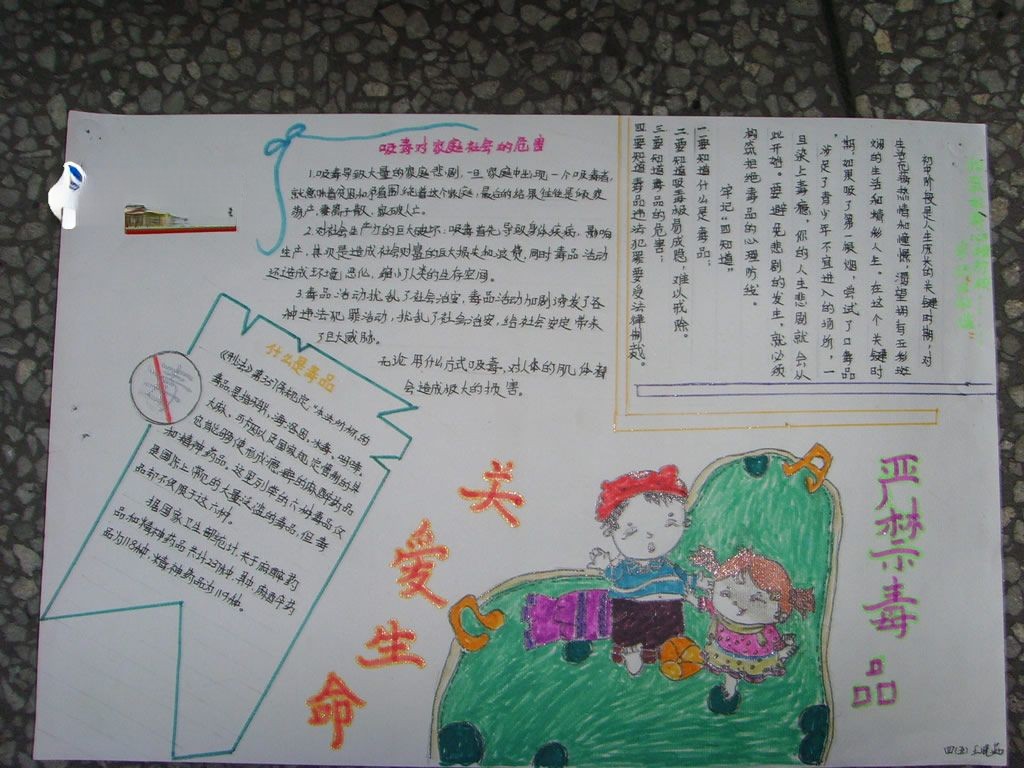 吸毒对家庭社会的危害
1.吸毒导致大量的家庭悲剧,一旦家庭中出现一个吸毒者,
就意味着贫困和
着这个家庭,最后的结果往往是
荡产,妻离子散,家破人亡。
2.对社会生产力的巨大破坏:吸毒首先导致身体疾病,影响
生产,其次是造成社会财富的巨大损失和浪费,同时毒品活动
还造成环境恶化,缩小人类的生存空间。
3.毒品活动扰乱了社会治安,毒品活动加剧诱发了各
种违法犯罪活动,扰乱了社会治安,给社会安定带来
了巨大威胁。
无论用什么方式吸毒,对人体的肌体都
会造成极大的损害。
初中阶段是人生成长的关键时期,对
生活充满热情和憧憬,渴望拥有五彩斑
斓的生活和精彩人生。在这个关键时
期,如果吸了第一根烟,尝试了口毒品
涉足了青少年不宜进入的场所,一
旦染上毒瘾,你的人生悲剧就会从
此开始。要避免悲剧的发生,就必须
构筑拒绝毒品的心理防线。
牢记“四知道”
一要知道什么是毒品;
二要知道吸毒极易成瘾,难以戒除。
三要知道毒品的危害;
四要知道毒品违法犯罪要受法律制裁。
什么是毒品
《刑法》第357条规定,“本法所称的
毒品,是指鸦片、海洛因、冰毒、吗啡、
大麻、可卡因以及国家规定管制的其
它能够使人形成瘾癖的麻醉药品
和精神药品。这里列举的六种毒品仅
是国际上常见的大量泛滥的毒品,但毒
品却不仅限于这六种。
据国家卫生部统计,关于麻醉药
品和精神药品共计237种,其中,麻醉药
品为118种,精神药品为119种。
关爱生命
严禁毒品